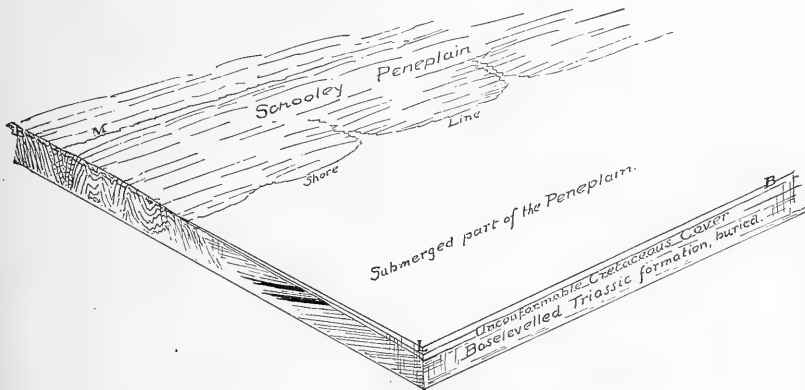 Schooley Peneplain
M
Line
Shore
B
Submerged part of the Peneplain.
Unconformable Cretaceous Cover
L
Baselevelled Triassic formation, buried.